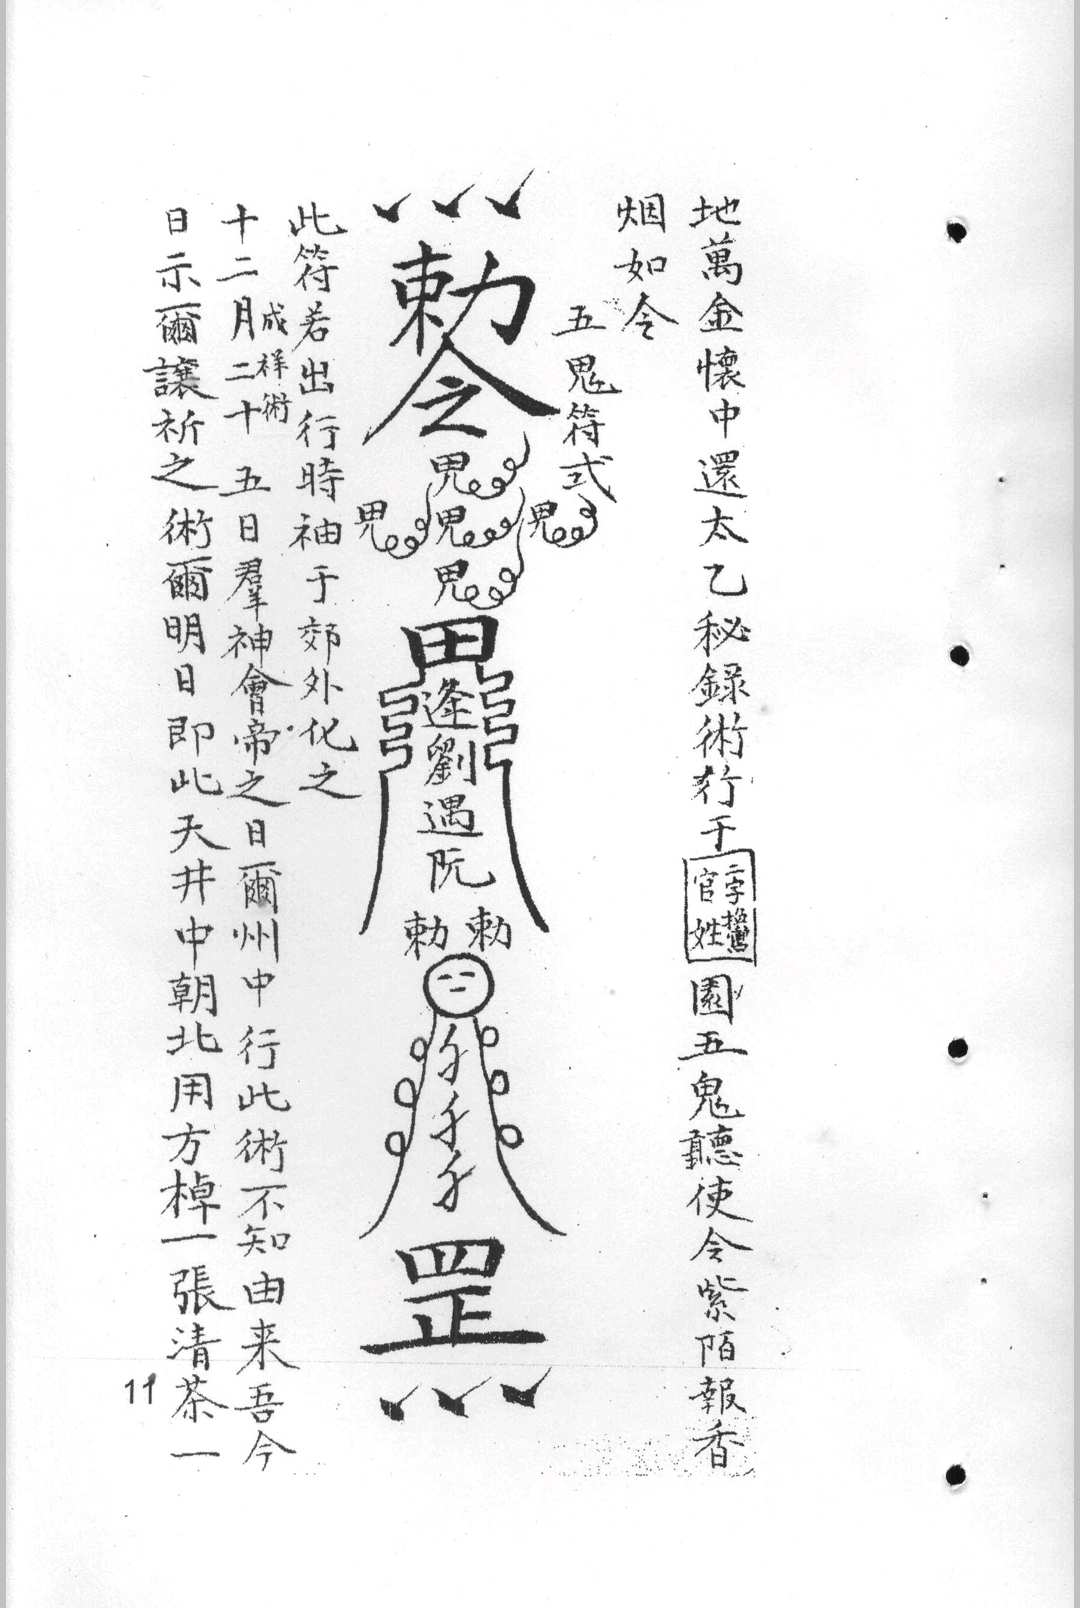 地萬金懷中還太乙秘錄術行于官姓二字換寫園五鬼聽使令紫陌報香
烟如令
五鬼符式
勅令
鬼
鬼 鬼 鬼
鬼
田
逢劉遇阮
勅 勅
罡
此符若出行時袖于郊外化之
成祥術
十二月二十五日羣神會帝之日爾州中行此術不知由来吾今
日示爾讓祈之術爾明日即此天井中朝北用方棹一張清茶一
11